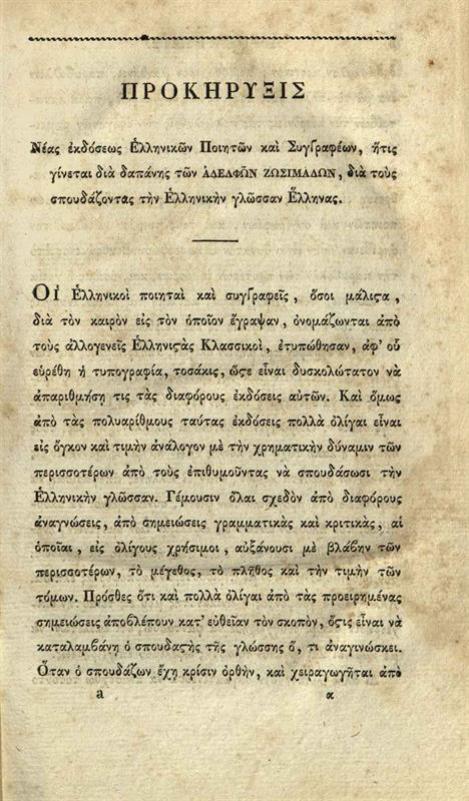 ΠΡΟΚΗΡΥΞΙΣ
Νέας ἐκδόσεως Ἑλληνικῶν Ποιητῶν καὶ Συγγραφέων, ἥτις
γίνεται διὰ δαπάνης τῶν ἈΔΕΛΦΩΝ ΖΩΣΙΜΑΔΩΝ, διὰ τοὺς
σπουδάζοντας τὴν Ἑλληνικὴν γλῶσσαν Ἕλληνας.
Οἱ Ἑλληνικοὶ ποιηταὶ καὶ συγγραφεῖς, ὅσοι μάλιϛα,
διὰ τὸν καιρὸν εἰς τὸν ὁποῖον ἔγραψαν, ὀνομάζωνται ἀπὸ
τοὺς ἀλλογενεῖς Ἑλληνιϛὰς Κλασσικοὶ, ἐτυπώθησαν, ἀφ' οὗ
εὑρέθη ἡ τυπογραφία, τοσάκις, ὥϛε εἶναι δυσκολώτατον νὰ
ἀπαριθμήσῃ τις τὰς διαφόρους ἐκδόσεις αὐτῶν. Καὶ ὅμως
ἀπὸ τὰς πολυαρίθμους ταύτας ἐκδόσεις πολλὰ ὀλίγαι εἶναι
εἰς ὄγκον καὶ τιμὴν ἀνάλογον μὲ τὴν χρηματικὴν δύναμιν τῶν
περισσοτέρων ἀπὸ τοὺς ἐπιθυμοῦντας νὰ σπουδάσωσι τὴν
Ἑλληνικὴν γλῶσσαν. Γέμουσιν ὅλαι σχεδὸν ἀπὸ διαφόρους
ἀναγνώσεις, ἀπὸ σημειώσεις γραμματικὰς καὶ κριτικὰς, αἱ
ὁποῖαι, εἰς ὀλίγους χρήσιμοι, αὐξάνουσι μὲ βλάβην τῶν
περισσοτέρων, τὸ μέγεθος, τὸ πλῆθος καὶ τὴν τιμὴν τῶν
τόμων. Πρόσθες ὅτι καὶ πολλὰ ὀλίγαι ἀπὸ τὰς προειρημένας
σημειώσεις ἀποβλέπουν κατ' εὐθεῖαν τὸν σκοπὸν, ὅϛις εἶναι νὰ
καταλαμβάνῃ ὁ σπουδαϛὴς τῆς γλώσσης ὅ, τι ἀναγινώσκει.
Ὅταν ὁ σπουδάζων ἔχῃ κρίσιν ὀρθὴν, καὶ χειραγωγῆται ἀπὸ
a α